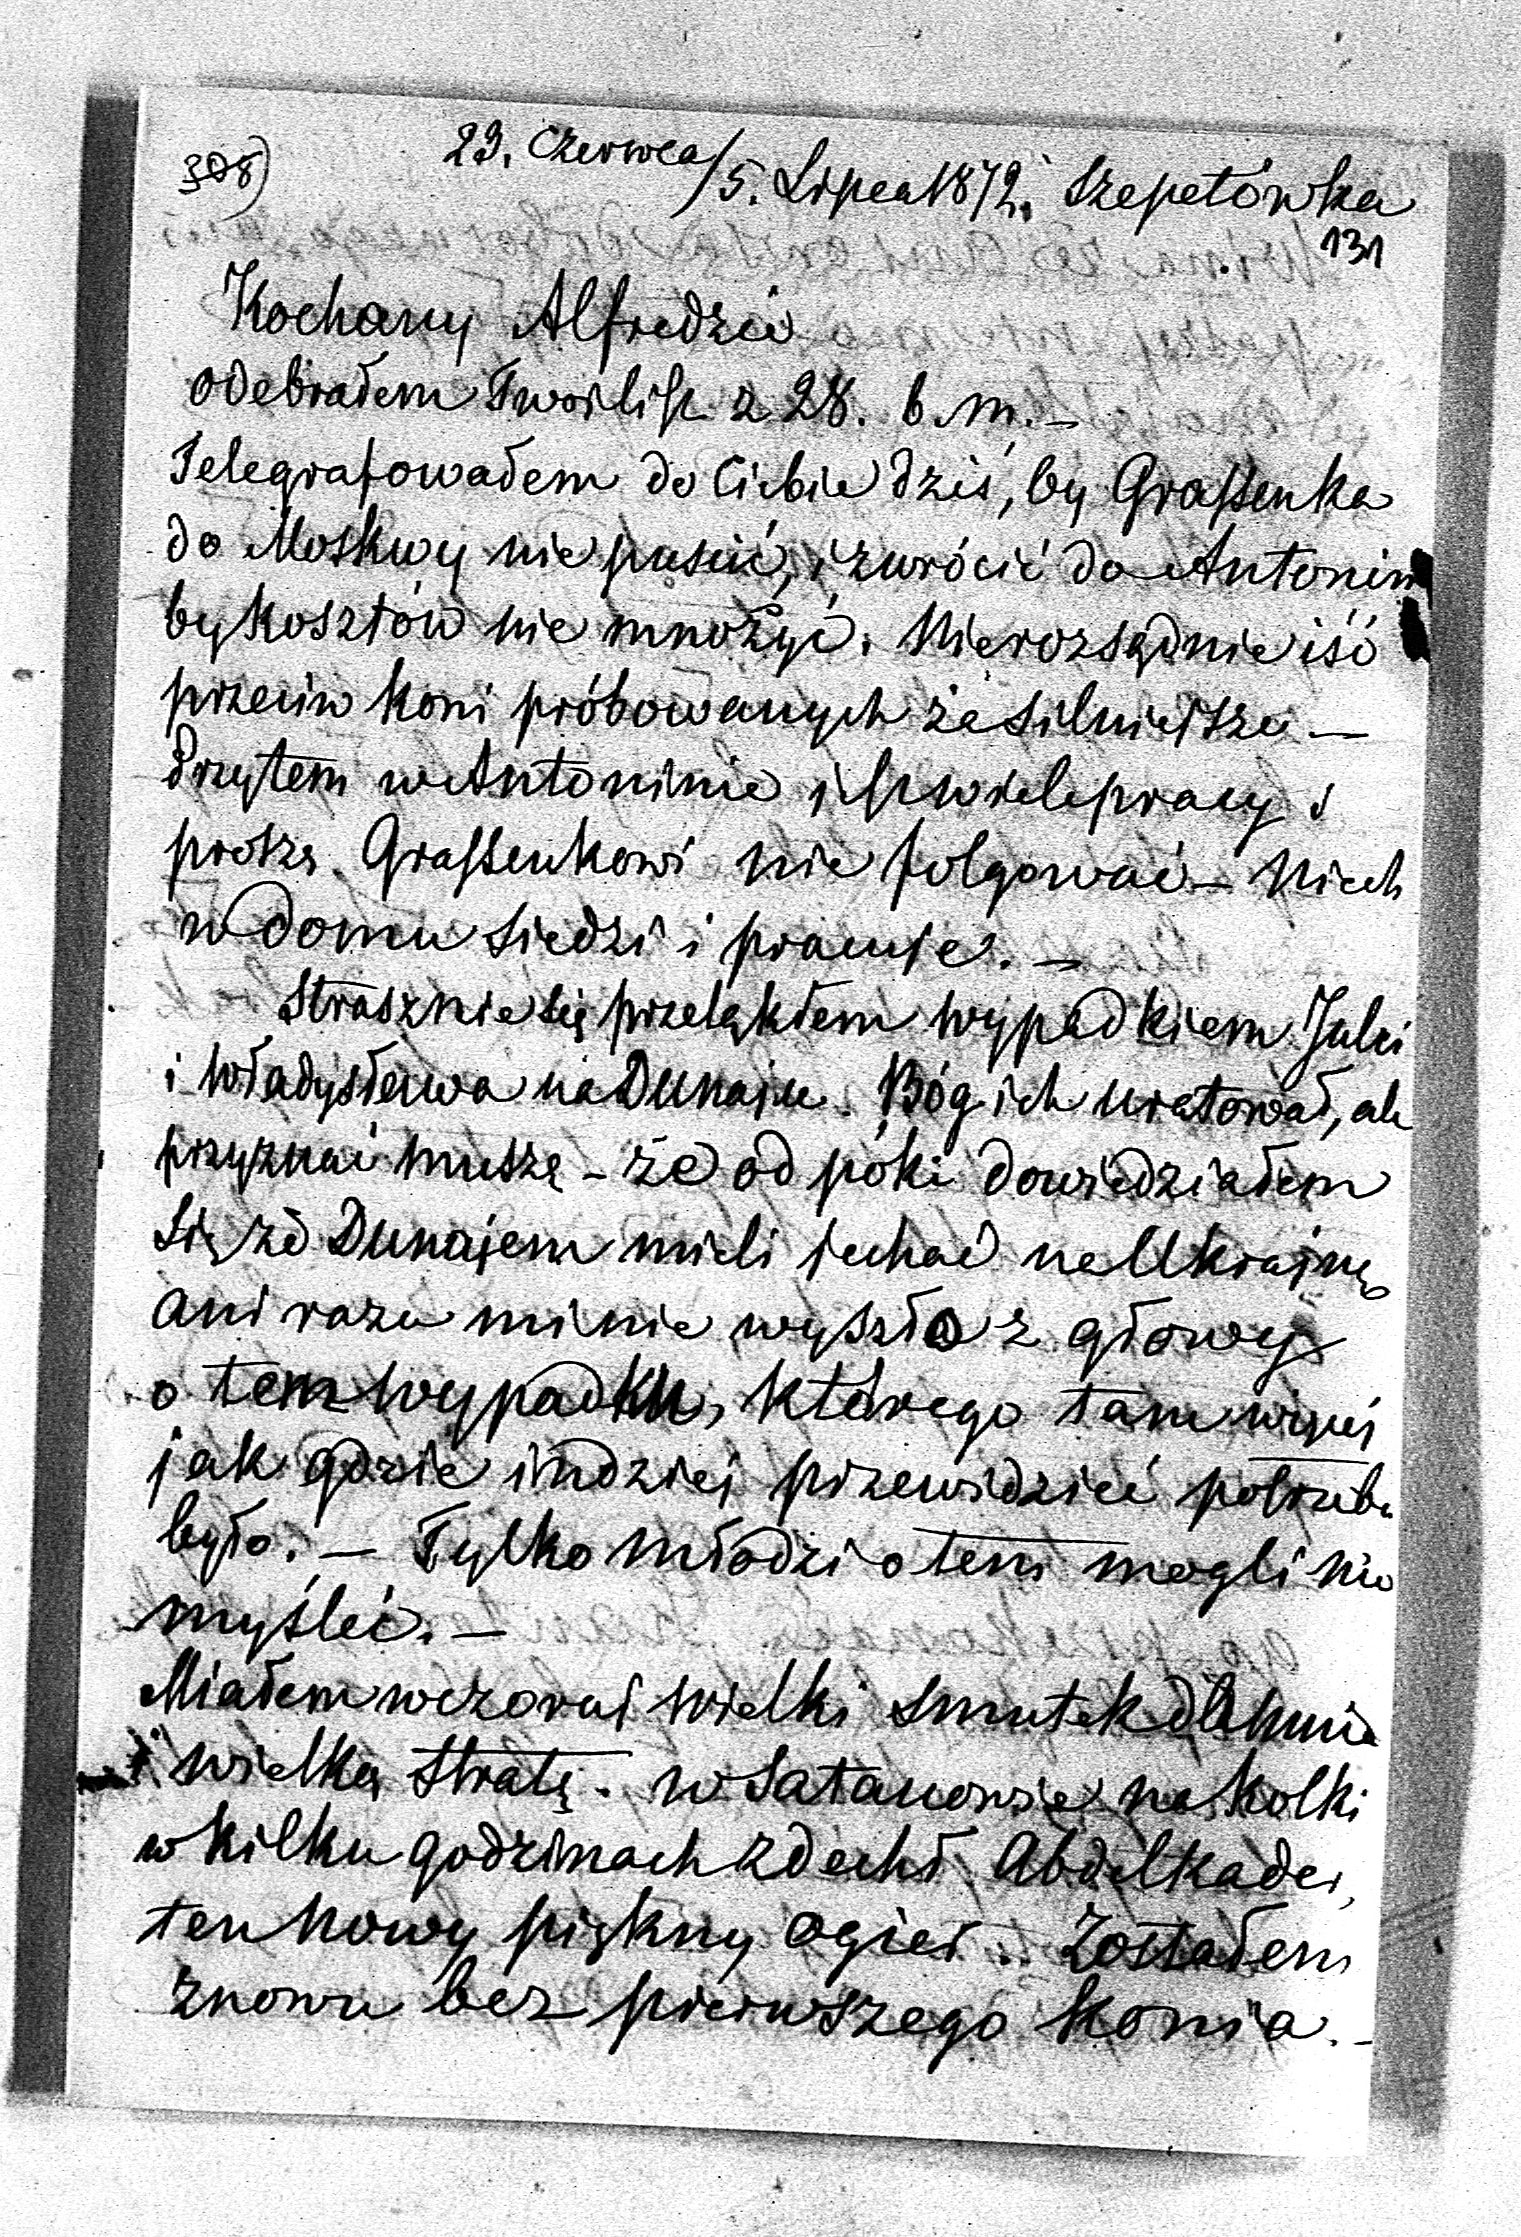 308)
23. Czerwca/5. Lipca 1872. Szepetówka
131
Kochany Alfredzie
odebrałem Twój list z 28. b. m. –
Telegrafowałem do Ciebie dziś, by Grafsenka
do Moskwy nie puścić, i zwrócić do Antonin
by kosztów nie mnożyć. Nierozsądnie iść
przeciw koni próbowanych że silniejsze –
Przytem w Antoninie jest wiele pracy i
proszę Grafsenkowi nie folgować – Niech
w domu siedzi i pracuje. –
Strasznie się przeląkłem wypadkiem Julci
i Władysława na Dunaju. Bóg ich uratował, ale
przyznać muszę – że od póki dowiedziałem
się że Dunajem mieli jechać na Ukrajnę
ani razu mi nie wyszło z głowy
o tem wypadku, którego tam więcej
jak gdzie indziej przewidzieć potrzeba
było. – Tylko młodzi o tem mogli nie
myśleć. –
Miałem wczoraj wielki smutek dla mnie
i wielką stratę. w Satanowie na kolki
w kilku godzinach zdechł Abdelkader,
ten nowy piękny ogier. Zostałem
znowu bez pierwszego konia. –